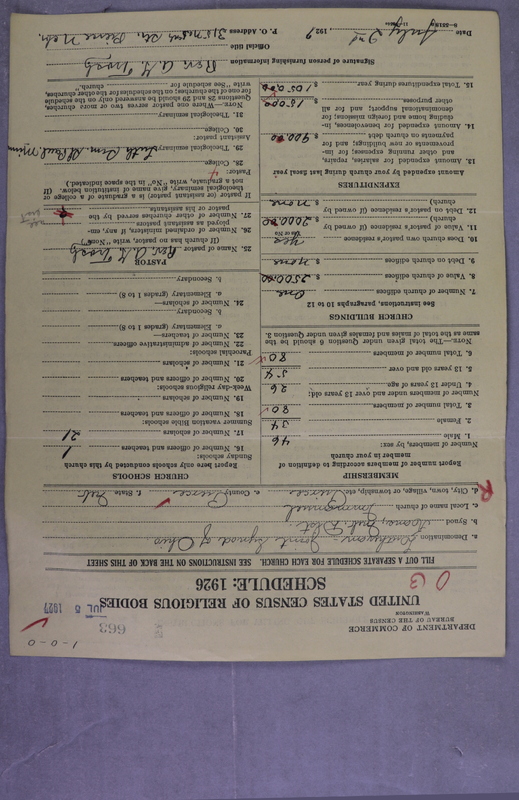 1-0-0
DEPARTMENT OF COMMERCE
BUREAU OF THE CENSUS
WASHINGTON
663
UNITED STATES CENSUS OF RELIGIOUS BODIES
JUL 5 1927
SCHEDULE: 1926
FILL OUT A SEPARATE SCHEDULE FOR EACH CHURCH. SEE INSTRUCTIONS ON THE BACK OF THIS SHEET
a. Denomination Lutheran - Joint Synod of Ohio
b. Synod
c. Local name of church Immanuel
d. City, town, village, or township, etc. Pierce e. County Pierce f. State Neb
MEMBERSHIP
Report number of members according to definition of
member in your church
Number of members, by sex:
1. Male 46
2. Female 34
3. Total number of members 80
Number of members under and over 13 years old:
4. Under 13 years of age 26
5. 13 years old and over 54
6. Total number of members 80
NOTE.—The total given under Question 6 should be the
same as the total of males and females given under Question 3.
CHURCH BUILDINGS
See instructions, paragraphs 10 to 12
7. Number of church edifices One
8. Value of church edifices $ 2500.00
9. Debt on church edifices $ None
10. Does church own pastor's residence Yes
Yes or No
11. Value of pastor's residence (if owned by
church) $ 2000.00
12. Debt on pastor's residence (if owned by
church) $ None
EXPENDITURES
Amount expended by your church during last fiscal year
13. Amount expended for salaries, repairs,
and other running expenses; for im-
provements or new buildings; and for
payments on church debt $ 900.00
14. Amount expended for benevolences, in-
cluding home and foreign missions; for
denominational support; and for all
other purposes $ 150.00
15. Total expenditures during year $ 1050.00
CHURCH SCHOOLS
Report here only schools conducted by this church
Sunday schools:
16. Number of officers and teachers 1
17. Number of scholars 21
Summer vacation Bible schools:
18. Number of officers and teachers
19. Number of scholars
Week-day religious schools:
20. Number of officers and teachers
21. Number of scholars
Parochial schools:
22. Number of administrative officers
23. Number of teachers—
a. Elementary (grades 1 to 8)
b. Secondary
24. Number of scholars—
a. Elementary (grades 1 to 8)
b. Secondary
PASTOR
25. Name of pastor Rev. A. G. Trost
(If church has no pastor, write "None")
26. Number of ordained ministers, if any, em-
ployed as assistant pastor
27. Number of other churches served by the
pastor or his assistants
If pastor (or assistant pastor) is a graduate of a college or
theological seminary, give name of institution below. (If
not a graduate, write "No," in the space indicated.)
Pastor:
28. College
29. Theological seminary Luth. Sem. St Paul, Minn
Assistant pastor:
30. College
31. Theological seminary
NOTE.—Where one pastor serves two or more churches,
Questions 28 and 29 should be answered only on the schedule
for one of the churches; on the schedules for the other churches,
write "See schedule for church."
Signature of person furnishing information Rev. A. G. Trost
Official title
P. O. Address 315 Main St. Pierce Nebr.
Date July 2nd, 1927